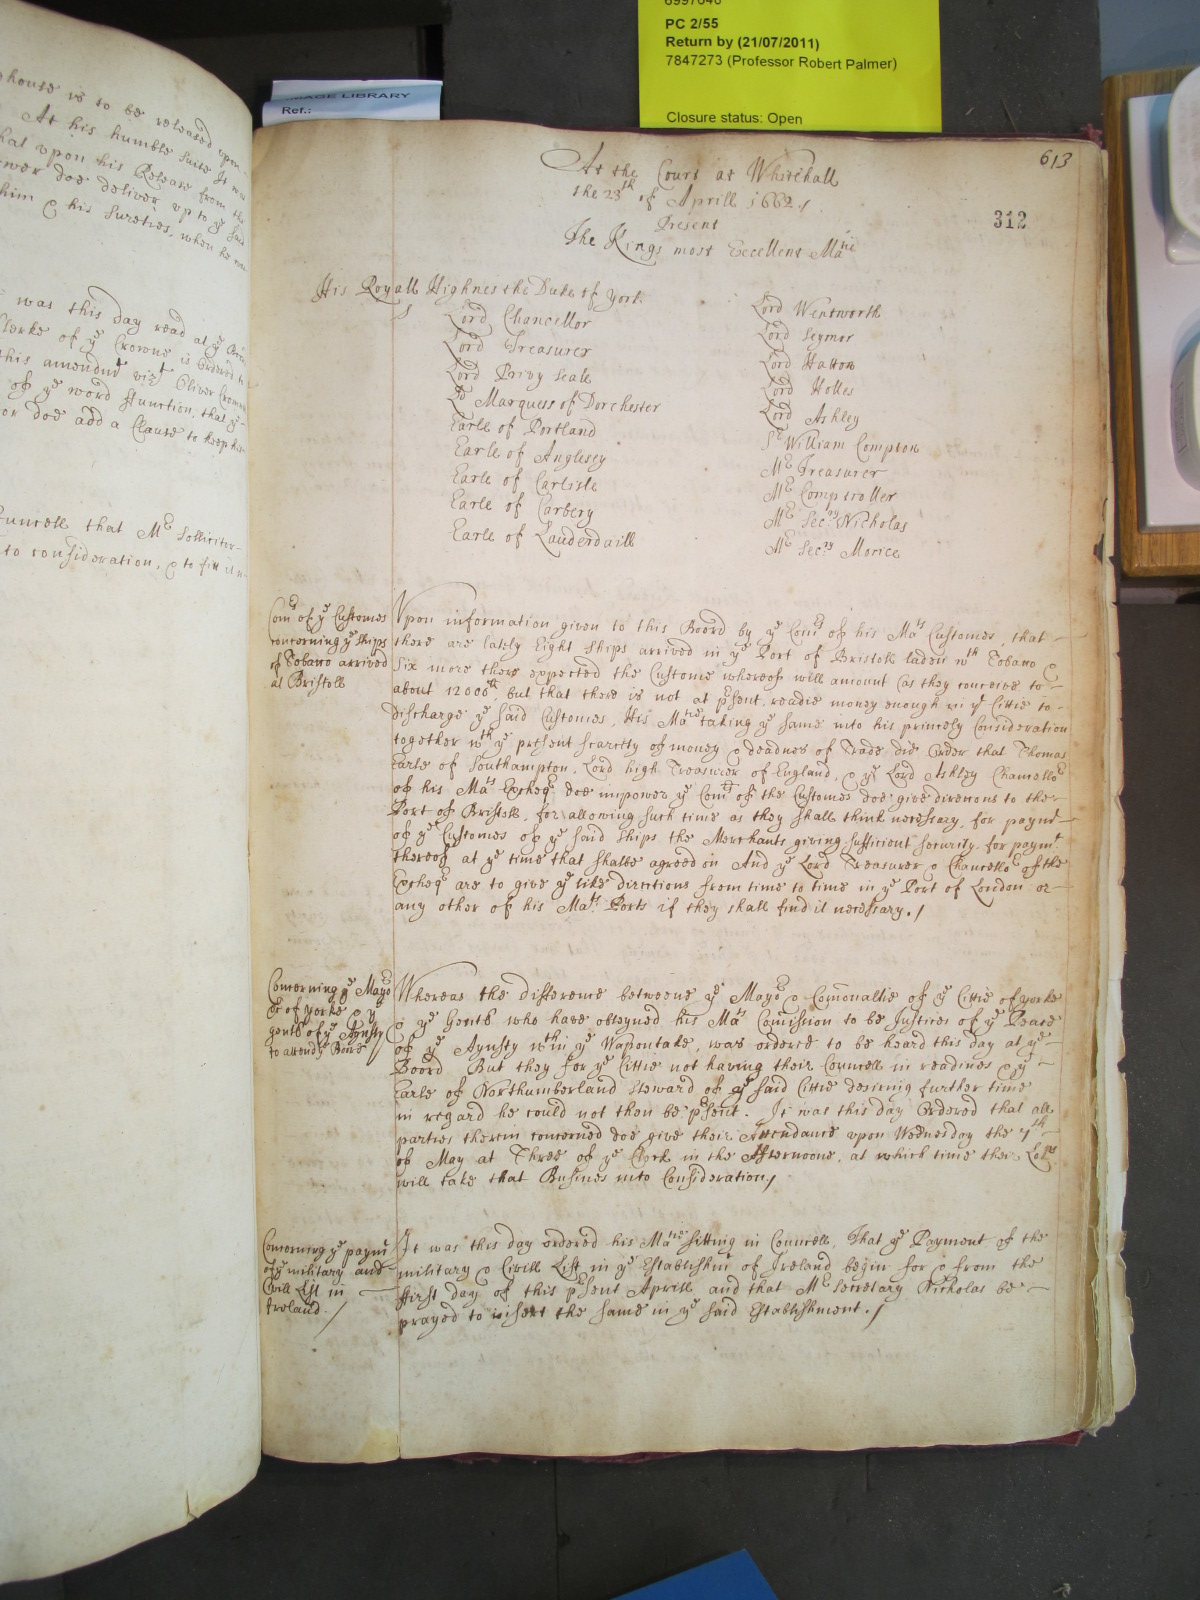 6997646
PC 2/55
Return by (21/07/2011)
7847273 (Professor Robert Palmer)
Closure status: Open
LIBRARY
Ref.:
house is to be released upon
At his humble suite It was
that upon his Release from the
doe deliver up to yᵉ said
him & his Sureties, when he
was this day read at yᵉ
Clerke of yᵉ Crowne is Ordered to
this amendmᵗ vizᵗ Oliver
of yᵉ word ffunction, that yᵉ
or doe add a Clause to keep his
Councell that Mʳ Solliciter
to consideration, & to
613
312
At the Court at Whitehall
the 23ᵗʰ of Aprill 1662./
Present
The Kings most Excellent Maᵗⁱᵉ
His Royall Highnes the Duke of York
Lord Chancellor
Lord Treasurer
Lord Privy Seale
Lᵈ Marquess of Dorchester
Earle of Portland
Earle of Anglesey
Earle of Carlisle
Earle of Carbery
Earle of Lauderdaill
Lord Wentworth
Lord Seymor
Lord Hatton
Lord Holles
Lord Ashley
Sʳ William Compton
Mʳ Treasurer
Mʳ Comptroller
Mʳ Secʳʸ Nicholas
Mʳ Secʳʸ Morice
Comʳˢ of yᵉ Customes
concerning yᵉ ships
of Tobaco arrived
at Bristoll
Upon information given to this Board by yᵉ Comʳˢ of his Maᵗˢ Customes, that
there are lately Eight ships arrived in yᵉ Port of Bristoll laden wᵗʰ Tobaco &
Six more there expected the Customes whereof will amount (as they conceive to
about 12000ˡⁱ, but that there is not at pʳsent readie money enough in yᵉ Cittie to
discharge yᵉ said Customes, His Maᵗⁱᵉ taking yᵉ same into his princely Consideration
together wᵗʰ yᵉ present scarcity of money & deadnes of Trade did Order that Thomas
Earle of Southampton, Lord high Treasurer of England, & yᵉ Lord Ashley Chancelloʳ
of his Maᵗˢ Excheqʳ doe impower yᵉ Comʳˢ of the Customes doe give direcons to the
Port of Bristoll, for allowing such time as they shall think necessary, for paymᵗ
of yᵉ Customes of yᵉ said ships the Merchants giving sufficient security for paymᵗ
thereof at yᵉ time that shalbe agreed on And yᵉ Lord Treasurer & Chancelloʳ of the
Excheqʳ are to give yᵉ like directions from time to time in yᵉ Port of London or
any other of his Maᵗˢ Ports if they shall find it necessary./
Concerning yᵉ Mayoʳ
&c of Yorke & yᵉ
gentˢ of yᵉ Aynsty
to attend yᵉ Board
Whereas the difference betweene yᵉ Mayoʳ & Comonaltie of yᵉ Cittie of Yorke
& yᵉ Gentˢ who have obteyned his Maᵗˢ Comission to be Justices of yᵉ Peace
of yᵉ Aynsty wᵗʰin yᵉ Wapontake, was ordered to be heard this day at yᵉ
Boord But they for yᵉ Cittie not having their Councell in readines & yᵉ
Earle of Northumberland Steward of yᵉ said Cittie desireing further time
in regard he could not then be pʳsent. It was this day Ordered that all
parties therein concerned doe give their Attendance upon Wednesday the 7ᵗʰ
of May at Three of yᵉ Clock in the Afternoone, at which time their Loᵖᵖˢ
will take that Busines into Consideration./
Concerning yᵉ paymᵗ
of yᵉ military and
Civill List in
Ireland./
It was this day ordered his Maᵗⁱᵉ sitting in Councell, That yᵉ Payment of the
military & Civill List in yᵉ Establishmᵗ of Ireland begin for & from the
ffirst day of this pʳsent Aprill and that Mʳ Secretary Nicholas be
prayed to insert the same in yᵉ said Establishment./